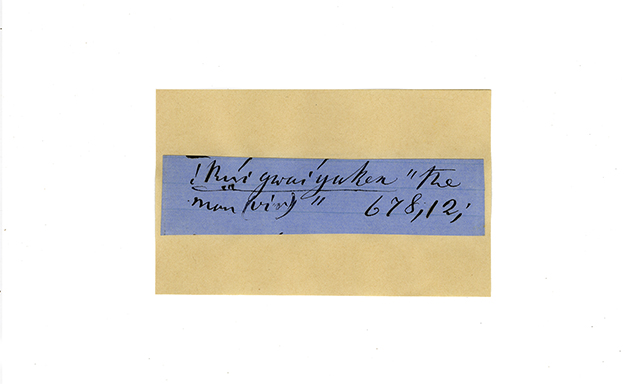 !kúi gwaíyaken "the
man (vir)" 678,12;